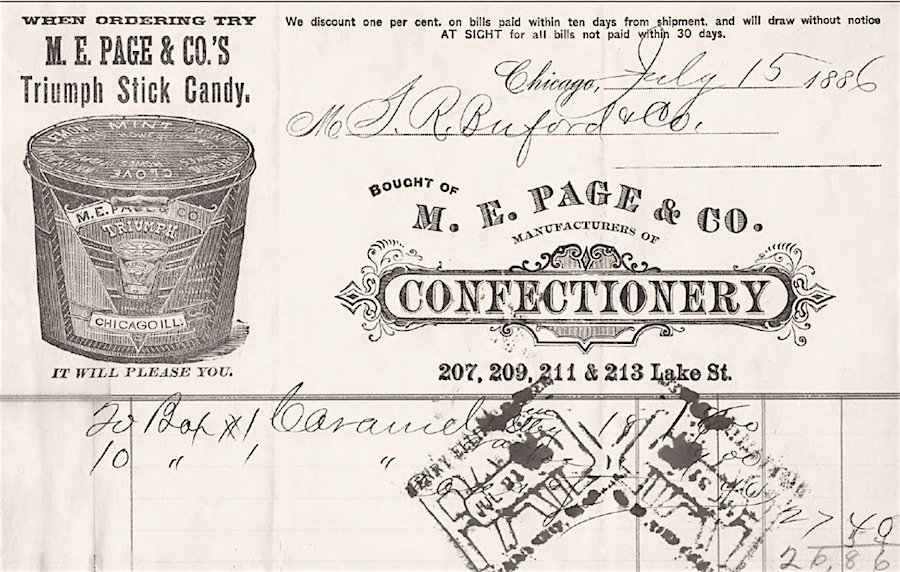 WHEN ORDERING TRY
M. E. PAGE & CO.'S
Triumph Stick Candy.
LEMON MINT
CLOVE
M. E. PAGE & CO.
TRIUMPH
CHICAGO ILL.
IT WILL PLEASE YOU.
We discount one per cent. on bills paid within ten days from shipment, and will draw without notice
AT SIGHT for all bills not paid within 30 days.
Chicago, July 15 1886
M T. R. Buford & Co.
BOUGHT OF
M. E. PAGE & CO.
MANUFACTURERS OF
CONFECTIONERY
207, 209, 211 & 213 Lake St.
20 Box X 1 Caramel 18
10 " 1 "
JUL 21
27 40
26,86